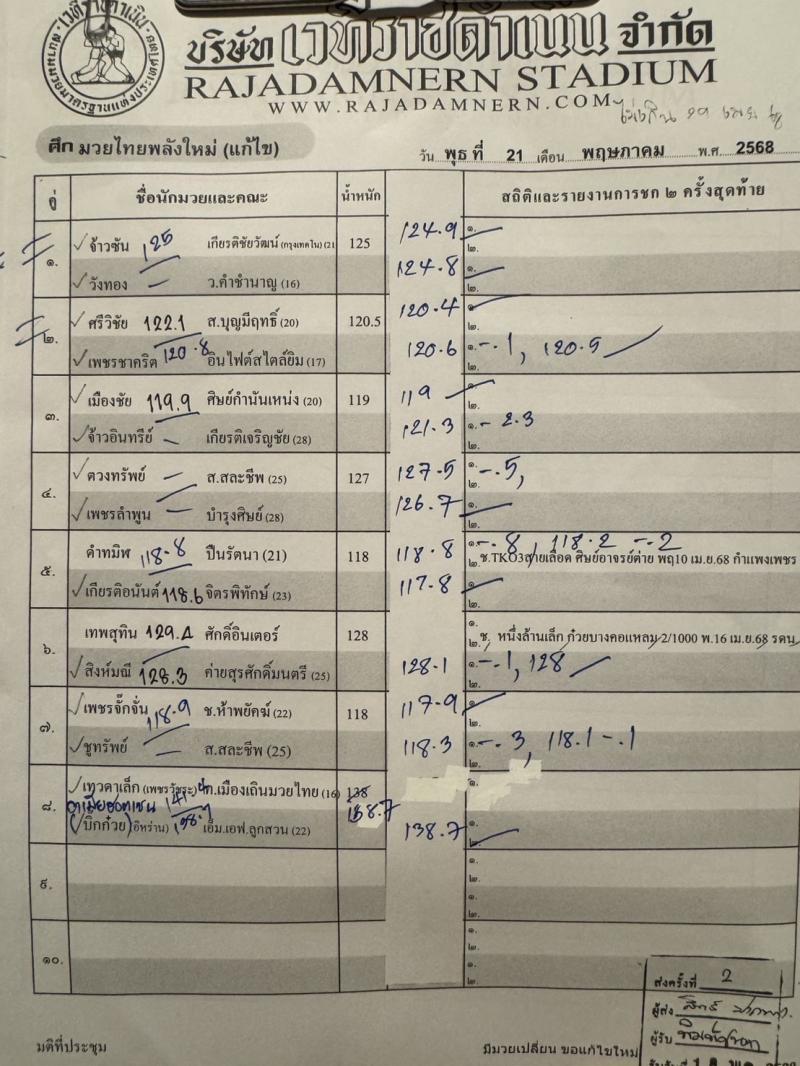 บริษัท เวทีราชดำเนิน จำกัด
RAJADAMNERN STADIUM
WWW.RAJADAMNERN.COM
ศึก มวยไทยพลังใหม่ (แก้ไข)
วัน พุธ ที่ 21 เดือน พฤษภาคม พ.ศ. 2568
คู่ ชื่อนักมวยและคณะ น้ำหนัก สถิติและรายงานการชก ๒ ครั้งสุดท้าย
๑. จ้าวซัน 125 เกียรติชัยวัฒน์ (กรุงเทคใน) (21 125 124.9 ๑.
๒.
วังทอง ว.คำชำนาญ (16) 124.8 ๑.
๒.
๒. ศรีวิชัย 122.1 ส.บุญมีฤทธิ์ (20) 120.5 120.4 ๑.
๒.
เพชรชาคริต 120.8 อินไฟต์สไตล์ยิม (17) 120.6 ๑. -.1, 120.5
๒.
๓. เมืองชัย 119.9 ศิษย์กำนันเหน่ง (20) 119 119 ๑.
๒.
จ้าวอินทรีย์ เกียรติเจริญชัย (28) 121.3 ๑. - 2.3
๒.
๔. ดวงทรัพย์ ส.สละชีพ (25) 127 127.5 ๑. -.5,
๒.
เพชรลำพูน บำรุงศิษย์ (28) 126.7 ๑.
๒.
๕. ดำทมิฬ 118.8 ปืนรัตนา (21) 118 118.8 ๑. -.8, 118.2 -.2
๒. ช.TKO3สายเลือด ศิษย์อาจรย์ต่าย พฤ10 เม.ย.68 กำแพงเพชร
เกียรติอนันต์ 118.6 จิตรพิทักษ์ (23) 117.8 ๑.
๒.
๖. เทพสุทิน 129.4 ศักดิ์อินเตอร์ 128 ๑.
๒. ช. หนึ่งล้านเล็ก ก๋วยบางคอแหลม 2/1000 พ.16 เม.ย.68 รดน.
สิงห์มณี 128.3 ค่ายสุรศักดิ์มนตรี (25) 128.1 ๑. -.1, 128
๒.
๗. เพชรจั๊กจั่น 118.9 ช.ห้าพยัคฆ์ (22) 118 117.9 ๑.
๒.
ชูทรัพย์ ส.สละชีพ (25) 118.3 ๑. -.3, 118.1 -.1
๒.
๘. เทวดาเล็ก (เพชรวัชระ) ท.เมืองเถินมวยไทย (16) 138 ๑.
138.7
(บิ๊กก๋วย) อิหร่าน) เอ็ม.เอฟ.ลูกสวน (22) 138.7 ๑.
๒.
๙. ๑.
๒.
๑.
๒.
๑๐. ๑.
๒.
๑.
๒.
ส่งครั้งที่ 2
ผู้ส่ง
ผู้รับ
มติที่ประชุม มีมวยเปลี่ยน ขอแก้ไขใหม่